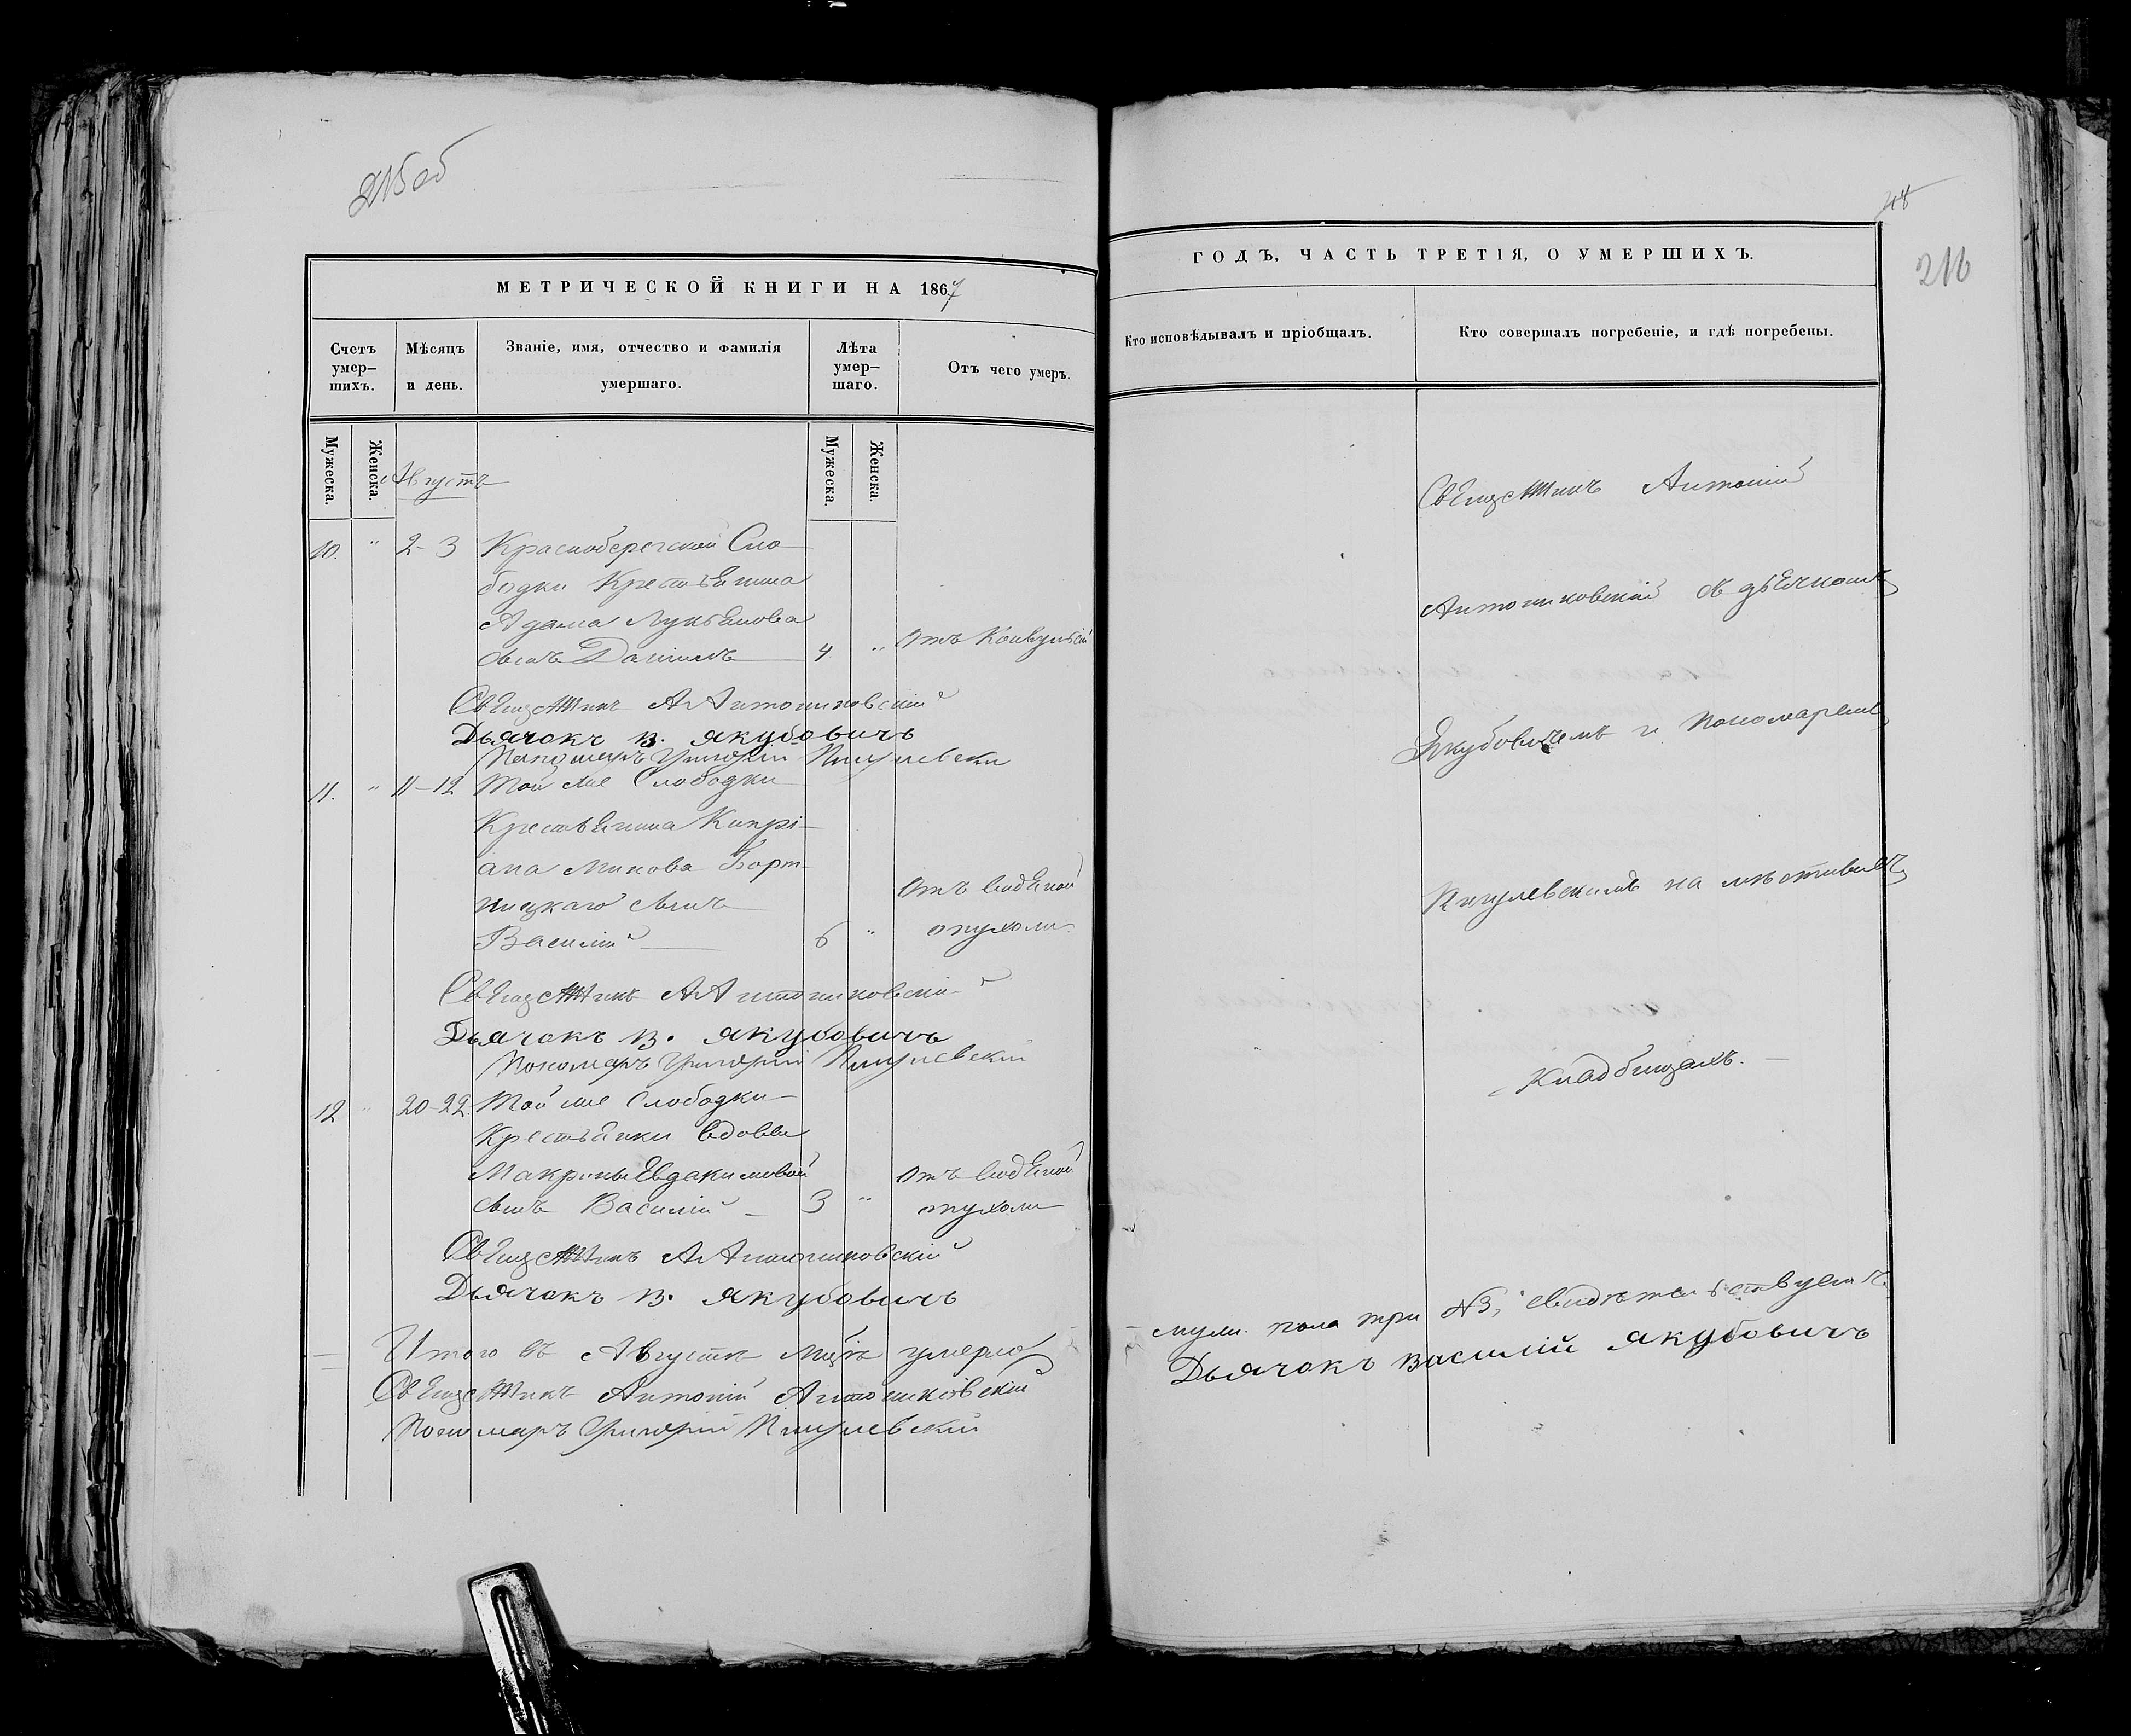 215 об
МЕТРИЧЕСКОЙ КНИГИ НА 1867
Счетъ умер–шихъ.
Мѣсяцъ и день.
Званіе, имя, отчество и фамилія умершаго.
Лѣта умер–шаго.
Отъ чего умеръ.
Мужеска.
Женска.
Мужеска.
Женска.
Августъ
10. " 2–3 Краснобережской Сло–
бодки Крестьянина
Адама Лукьянова
сынъ Даніилъ 4 " Отъ Конвульсій
Священникъ А Антониковскій
Дьячокъ В. Якубовичъ
Пономарь Григорій
11. " 11–12 Той же Слободки
Крестьянина Кипрі–
ана Минова Борт–
ницкаго сынъ
Василій 6 " Отъ водяной
опухоли
Священникъ А Антониковскій
Дьячокъ В. Якубовичъ
Пономарь Григорій
12 " 20–22. Той же Слободки
Крестьянки вдовы
Макрины Евдакимовой
сынъ Василій 3 " Отъ водяной
опухоли
Священникъ А Антониковскій
Дьячокъ В. Якубовичъ
Итого въ Августѣ мцѣ умерло
Священникъ Антоній Антониковскій
Пономарь Григорій
48
216
ГОДЪ, ЧАСТЬ ТРЕТІЯ, О УМЕРШИХЪ.
Кто исповѣдывалъ и пріобщалъ.
Кто совершалъ погребеніе, и гдѣ погребены.
Священникъ Антоній
Антониковскій съ дьячкомъ
Якубовичемъ и пономаремъ
на мѣстныхъ
Кладбищахъ.
муж. пола три №3,
Дьячокъ Василій Якубовичъ